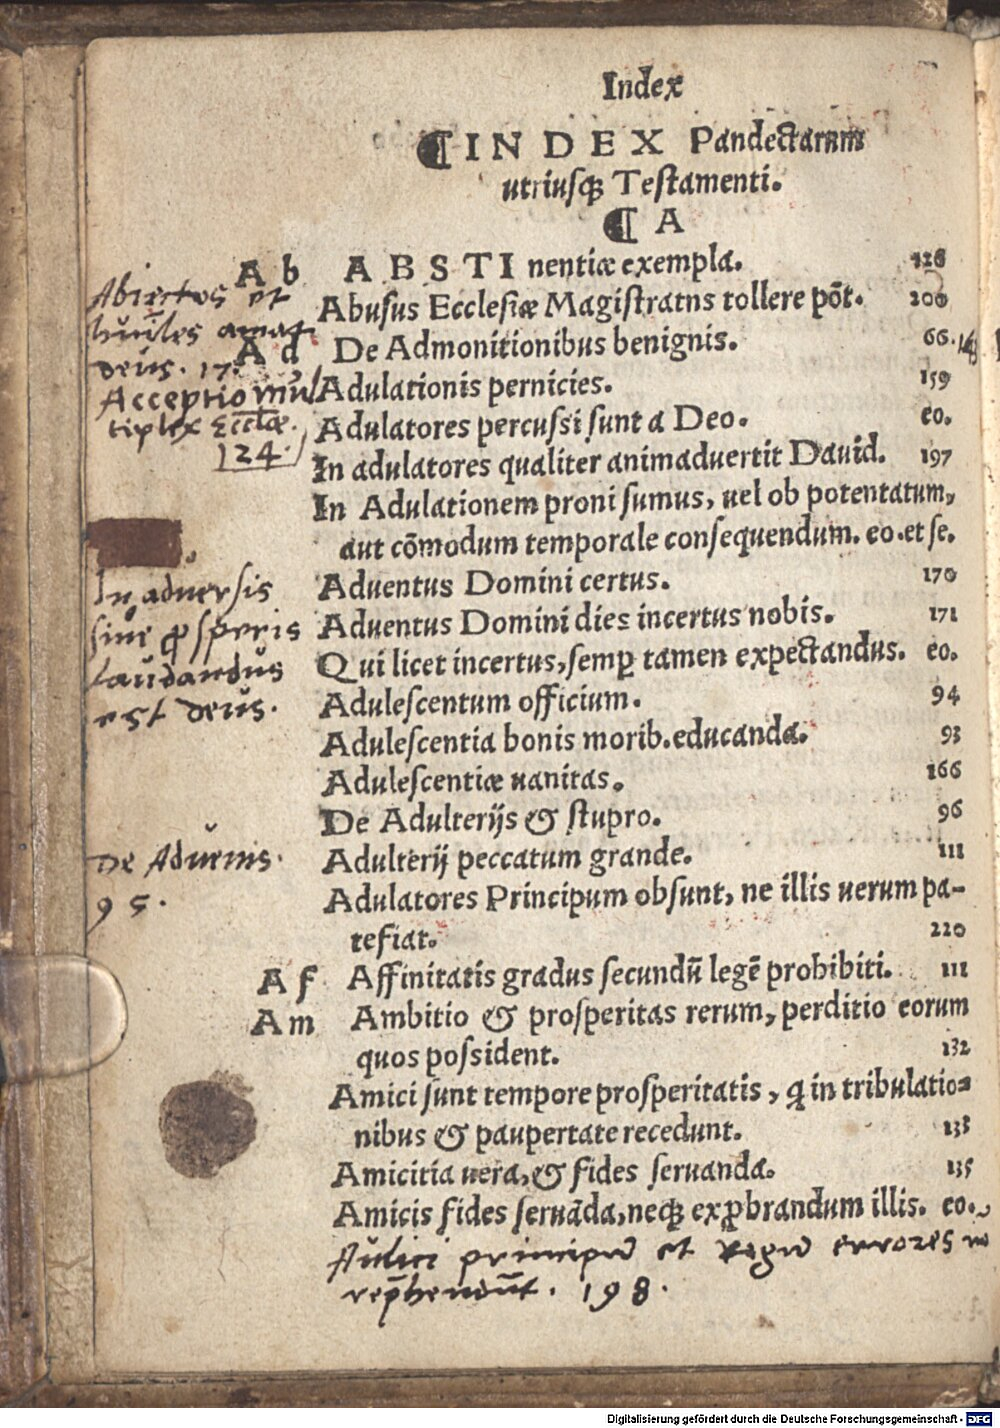 Index
INDEX Pandectarum
utriusq; Testamenti.
A
Ab ABSTInentiæ exempla. 126
Abiectos et
huīles amat
deus. 17.
Abusus Ecclesiæ Magistratus tollere põt. 200
Ad De Admonitionibus benignis. 66.
Acceptio mul
tiplex Eccłæ.
124.
Adulationis pernicies. 159
Adulatores percussi sunt a Deo. eo.
In adulatores qualiter animaduertit Dauid. 197
In Adulationem proni sumus, uel ob potentatum,
aut cõmodum temporale consequendum. eo. et se.
In aduersis
siue ꝓsperis
laudandus
est deus.
Aduentus Domini certus. 170
Aduentus Domini dies incertus nobis. 171
Qui licet incertus, semꝑ tamen exꝑectandus. eo.
Adulescentum officium. 94
Adulescentia bonis morib. educanda. 93
Adulescentiæ uanitas. 166
De Adulterijs & stupro. 96
De Aduenis.
95.
Adulterij peccatum grande. 111
Adulatores Principum obsunt, ne illis uerum pa-
tefiat. 220
Af Affinitatis gradus secundũ legẽ prohibiti. 111
Am Ambitio & prosperitas rerum, perditio eorum
quos possident. 132
Amici sunt tempore prosperitatis, q̃ in tribulatio-
nibus & paupertate recedunt.
Amicitia uera, & fides seruanda. 135
Amicis fides seruãda, neq; exꝓbrandum illis. eo.
Aulici principũ et Regũ errores
rep̄hendūt. 198.
Digitalisierung gefördert durch die Deutsche Forschungsgemeinschaft - DFG